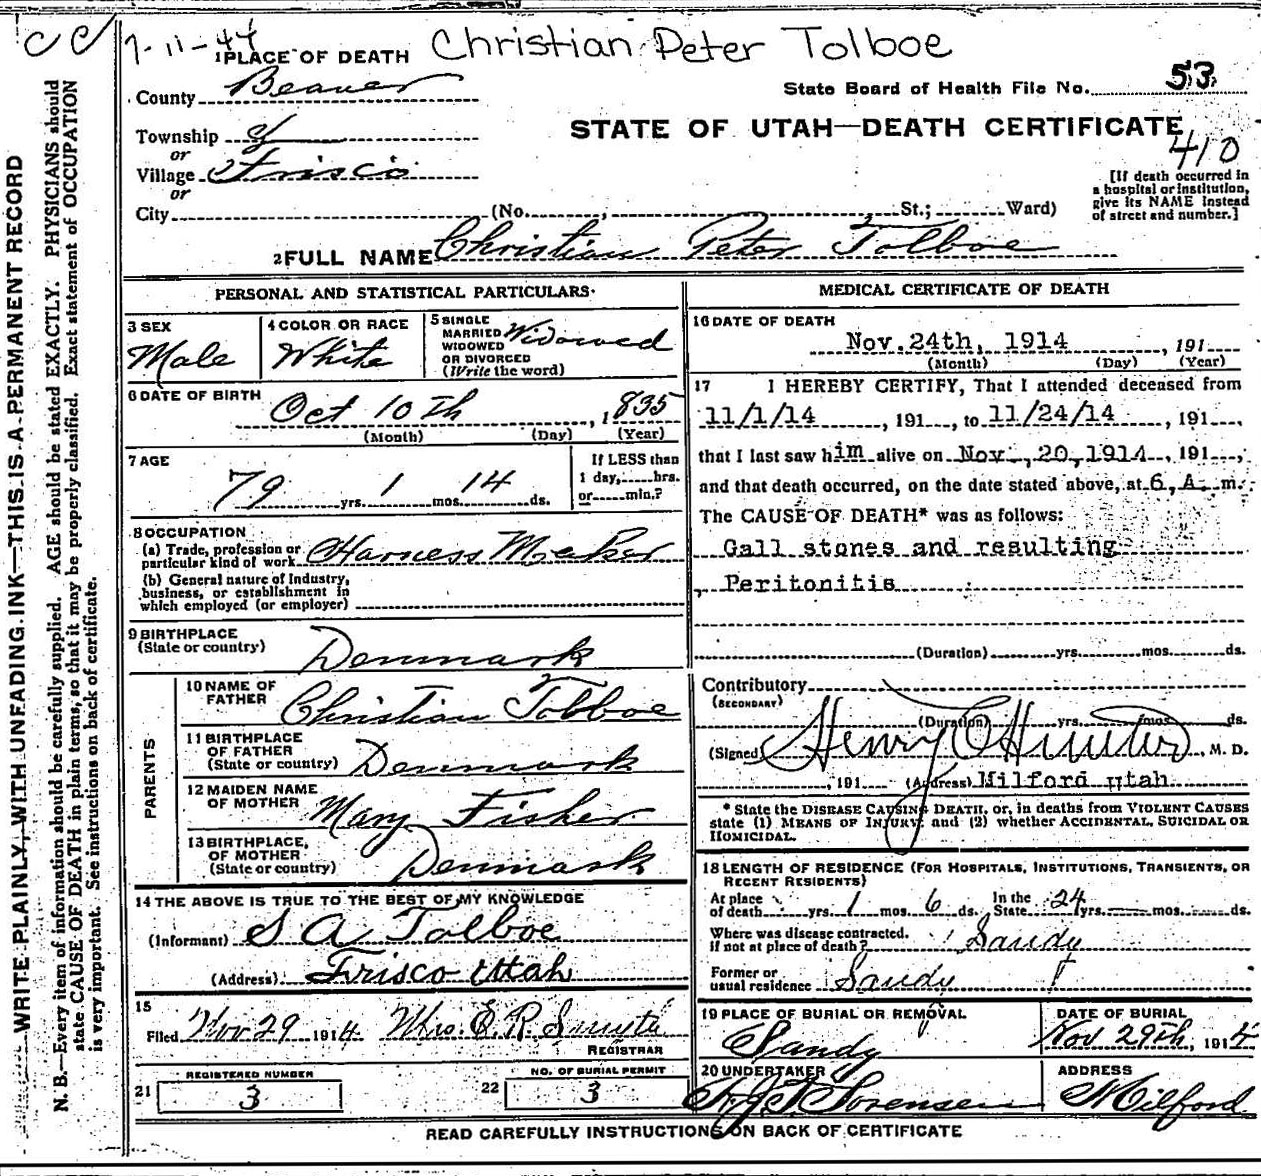 CC 7-11-44 Christian Peter Tolboe
1 PLACE OF DEATH
County Beaver
State Board of Health File No. 53
Township
or
Village Frisco
or
City (No. , St.; Ward)
STATE OF UTAH—DEATH CERTIFICATE
410
[If death occurred in
a hospital or institution,
give its NAME instead
of street and number.]
2 FULL NAME Christian Peter Tolboe
PERSONAL AND STATISTICAL PARTICULARS
3 SEX
Male
4 COLOR OR RACE
White
5 SINGLE
MARRIED
WIDOWED
OR DIVORCED
(Write the word)
Widowed
6 DATE OF BIRTH
Oct 10th , 1835
(Month) (Day) (Year)
7 AGE
79 yrs. 1 mos. 14 ds.
If LESS than
1 day, hrs.
or min.?
8 OCCUPATION
(a) Trade, profession or
particular kind of work Harness Maker
(b) General nature of Industry,
business, or establishment in
which employed (or employer)
9 BIRTHPLACE
(State or country) Denmark
PARENTS
10 NAME OF
FATHER Christian Tolboe
11 BIRTHPLACE
OF FATHER
(State or country) Denmark
12 MAIDEN NAME
OF MOTHER Mary Fisher
13 BIRTHPLACE,
OF MOTHER
(State or country) Denmark
14 THE ABOVE IS TRUE TO THE BEST OF MY KNOWLEDGE
(Informant) S A Tolboe
(Address) Frisco Utah
15
Filed Nov 29 1914 Mrs. E. R. Smyth
REGISTRAR
21 REGISTERED NUMBER
3
22 NO. OF BURIAL PERMIT
3
MEDICAL CERTIFICATE OF DEATH
16 DATE OF DEATH
Nov.24th, 1914 , 191
(Month) (Day) (Year)
17 I HEREBY CERTIFY, That I attended deceased from
11/1/14 , 191 , to 11/24/14 , 191 ,
that I last saw him alive on Nov ,20,1914 , 191 ,
and that death occurred, on the date stated above, at 6 A. m.
The CAUSE OF DEATH* was as follows:
Gall stones and resulting
Peritonitis
(Duration) yrs. mos. ds.
Contributory
(SECONDARY)
(Duration) yrs. mos. ds.
(Signed) Henry C Hunter, M. D.
, 191 (Address) Milford Utah
* State the DISEASE CAUSING DEATH, or, in deaths from VIOLENT CAUSES
state (1) MEANS OF INJURY; and (2) whether ACCIDENTAL, SUICIDAL OR
HOMICIDAL.
18 LENGTH OF RESIDENCE (FOR HOSPITALS, INSTITUTIONS, TRANSIENTS, OR
RECENT RESIDENTS)
At place
of death yrs. 1 mos. 6 ds. In the
State 24 yrs. mos. ds.
Where was disease contracted,
if not at place of death? Sandy
Former or
usual residence Sandy
19 PLACE OF BURIAL OR REMOVAL
Sandy
DATE OF BURIAL
Nov 29th, 1914
20 UNDERTAKER
Sorensen
ADDRESS
Milford
READ CAREFULLY INSTRUCTIONS ON BACK OF CERTIFICATE
WRITE PLAINLY, WITH UNFADING INK—THIS IS A PERMANENT RECORD
N. B.—Every item of information should be carefully supplied. AGE should be stated EXACTLY. PHYSICIANS should
state CAUSE OF DEATH in plain terms, so that it may be properly classified. Exact statement of OCCUPATION
is very important. See instructions on back of certificate.